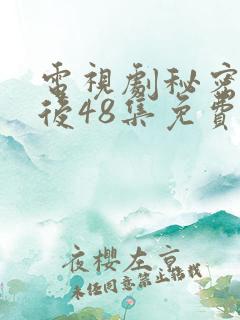 電視劇秘密
後48集免費
夜櫻左京
未經同意禁止搭我